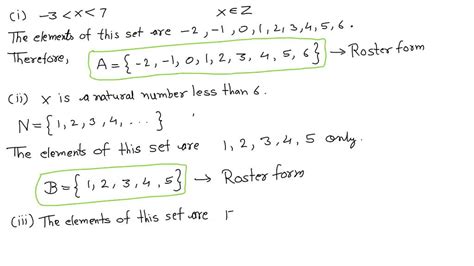 (i) -3 < x < 7 x ∈ Z
The elements of this set are -2, -1, 0, 1, 2, 3, 4, 5, 6.
Therefore, A = { -2, -1, 0, 1, 2, 3, 4, 5, 6 } → Roster form
(ii) x is a natural number less than 6.
N = { 1, 2, 3, 4, ... }
The elements of this set are 1, 2, 3, 4, 5 only.
B = { 1, 2, 3, 4, 5 } → Roster form
(iii) The elements of this set are 1